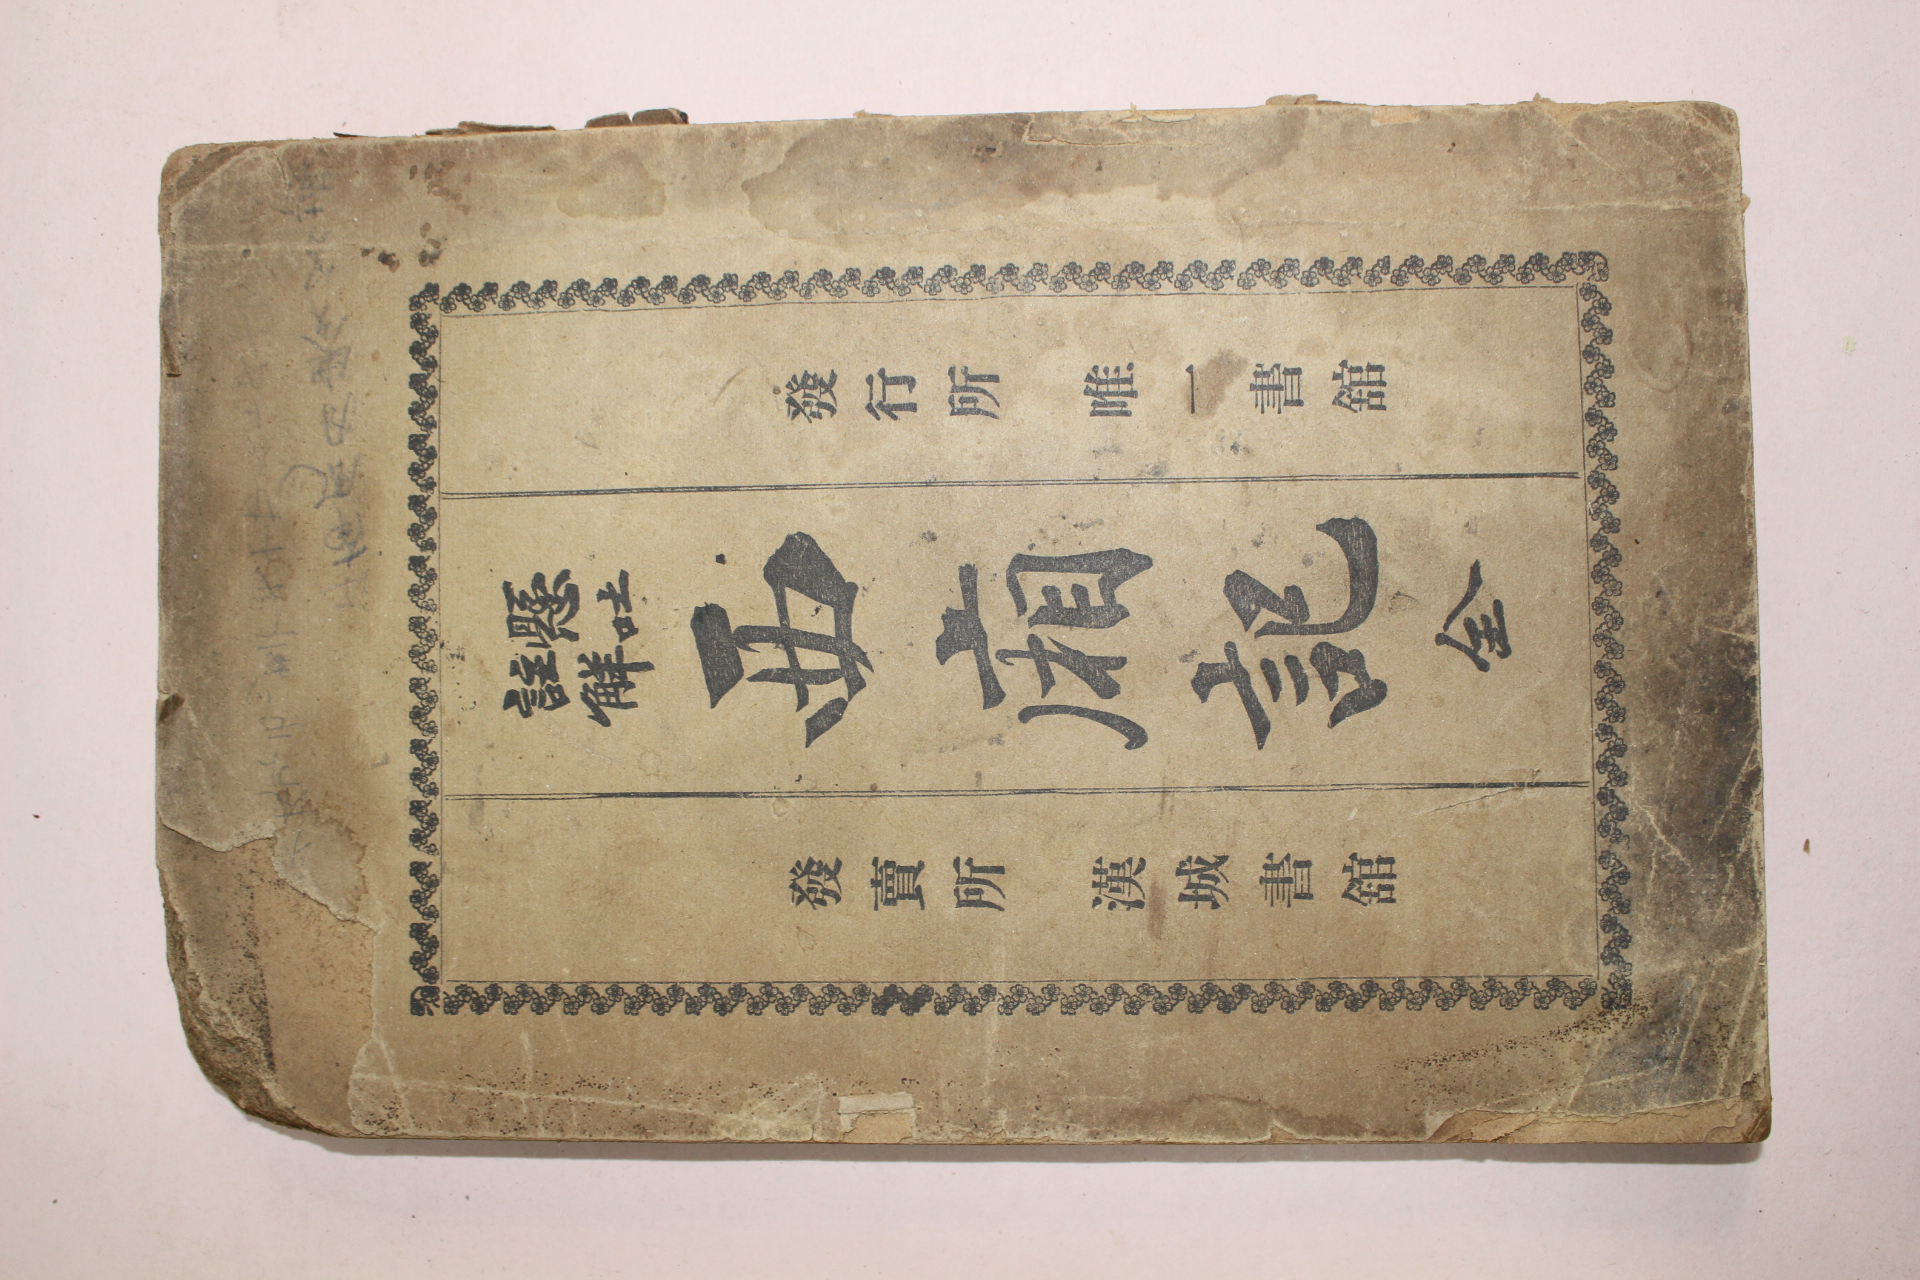 發行所 唯一書舘
懸吐
註觧
西廂記 全
發賣所 漢城書舘